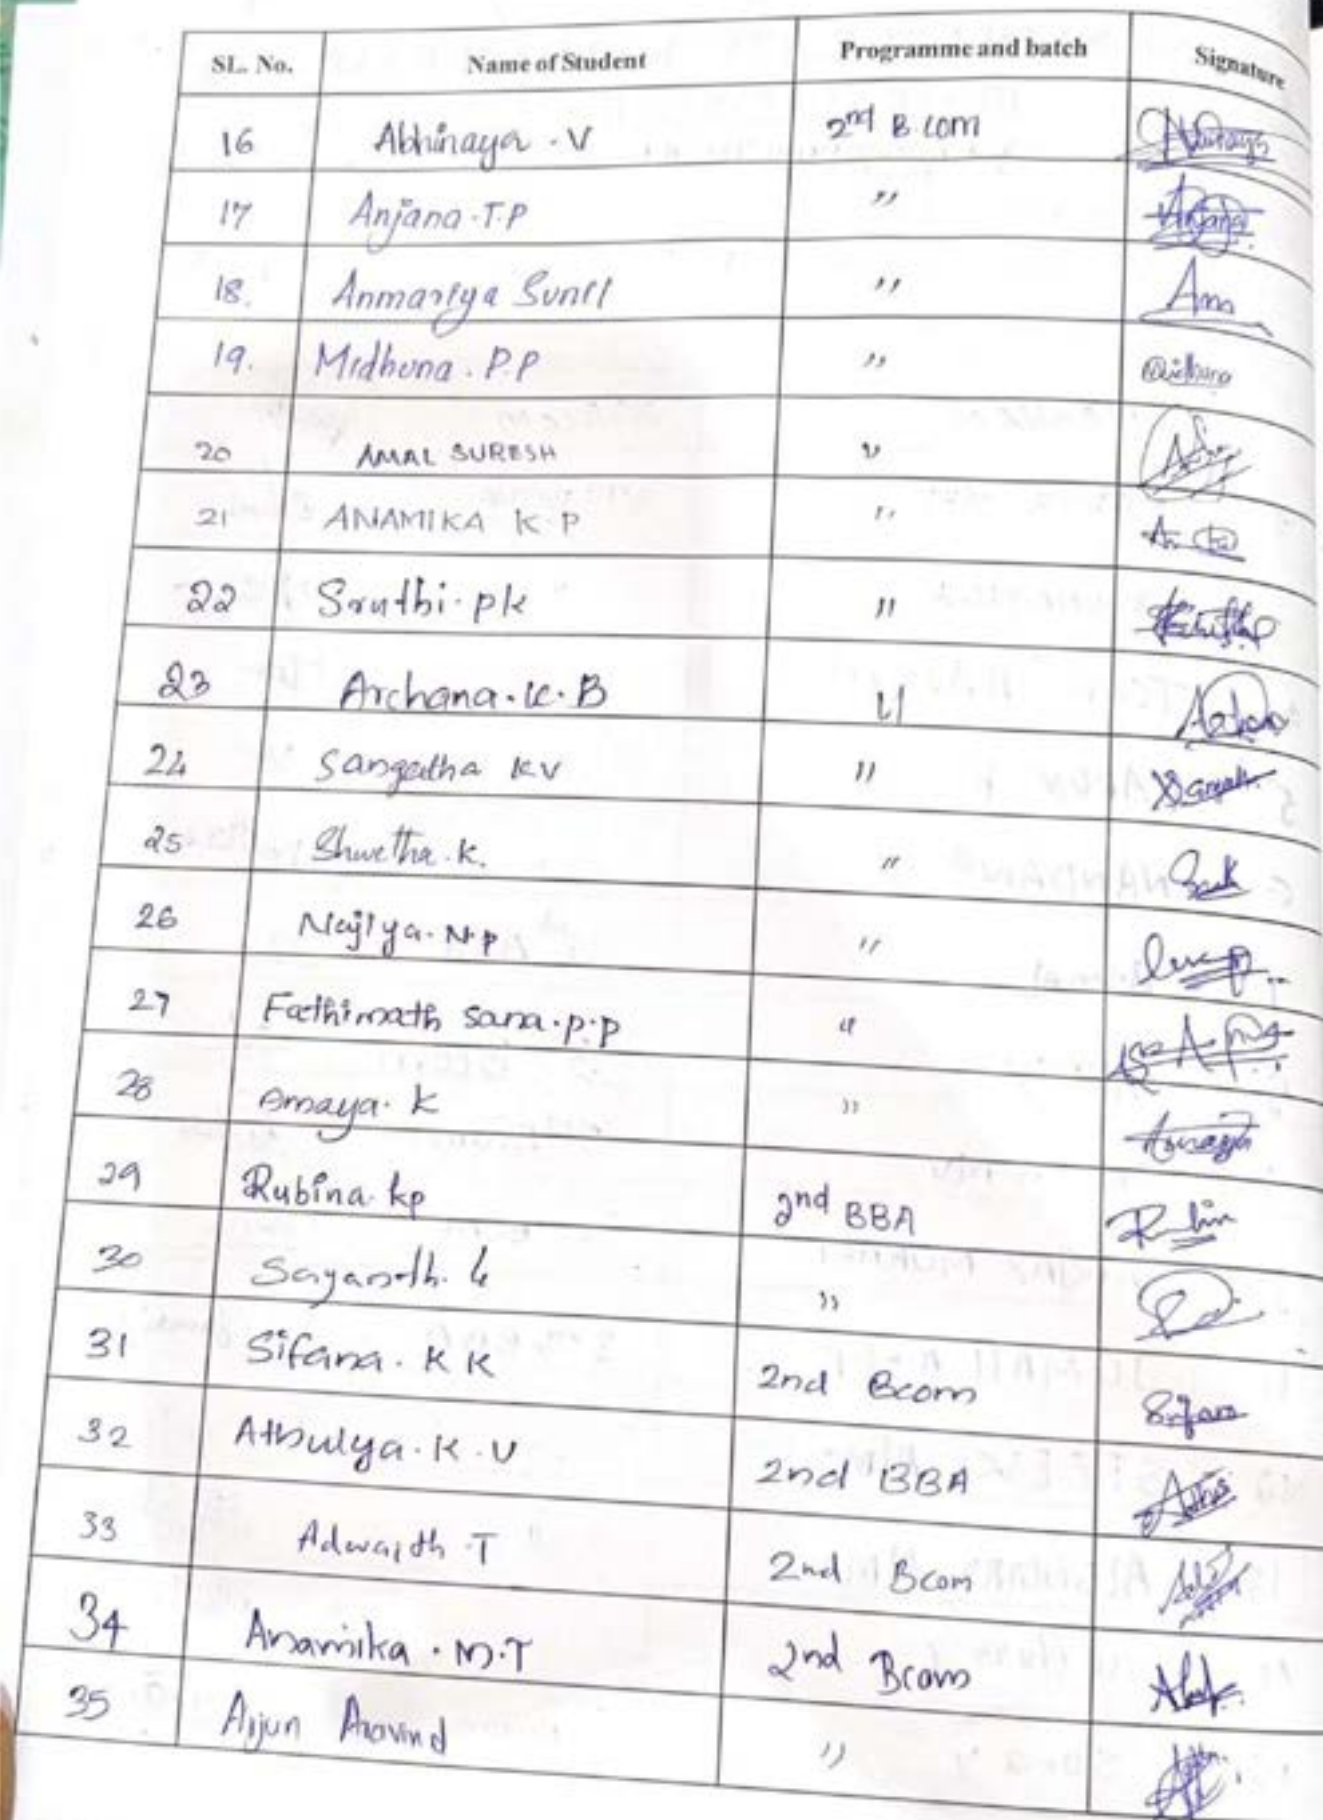 SL. No. Name of Student Programme and batch Signature
16 Abhinaya . V 2nd B com
17 Anjana . T. P "
18. Anmariya Sunil "
19. Midhuna . P. P "
20 AMAL SURESH "
21 ANAMIKA K P "
22 Sruthi . pk "
23 Archana . K. B "
24 Sangeetha KV "
25 Shwetha . K. "
26 Najiya . N. p "
27 Fathimath Sana . p. p "
28 Amaya . K "
29 Rubina . kp 2nd BBA
30 Sayandh. "
31 Sifana . K K 2nd Bcom Sifana
32 Athulya . K . V 2nd BBA
33 Adwaith . T 2nd Bcom
34 Anamika . M. T 2nd Bcom
35 Arjun Aravind "